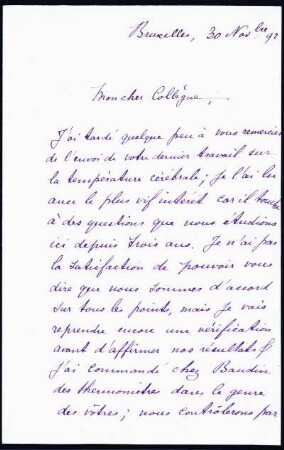 Bruxelles, 30 Nov bre 92
Mon cher Collègue,
J'ai tardé quelque peu à vous remercier
de l'envoi de votre dernier travail sur
la température cérébrale; je l'ai lu
avec le plus vif intérêt car il touche
à des questions que nous étudions
ici depuis trois ans. Je n'ai pas
la satisfaction de pouvoir vous
dire que nous sommes d'accord
sur tous les points, mais je vais
reprendre encore une vérification
avant d'affirmer nos résultats
J'ai commandé chez Baudin
des thermomètre dans le genre
des vôtres; nous contrôlerons par